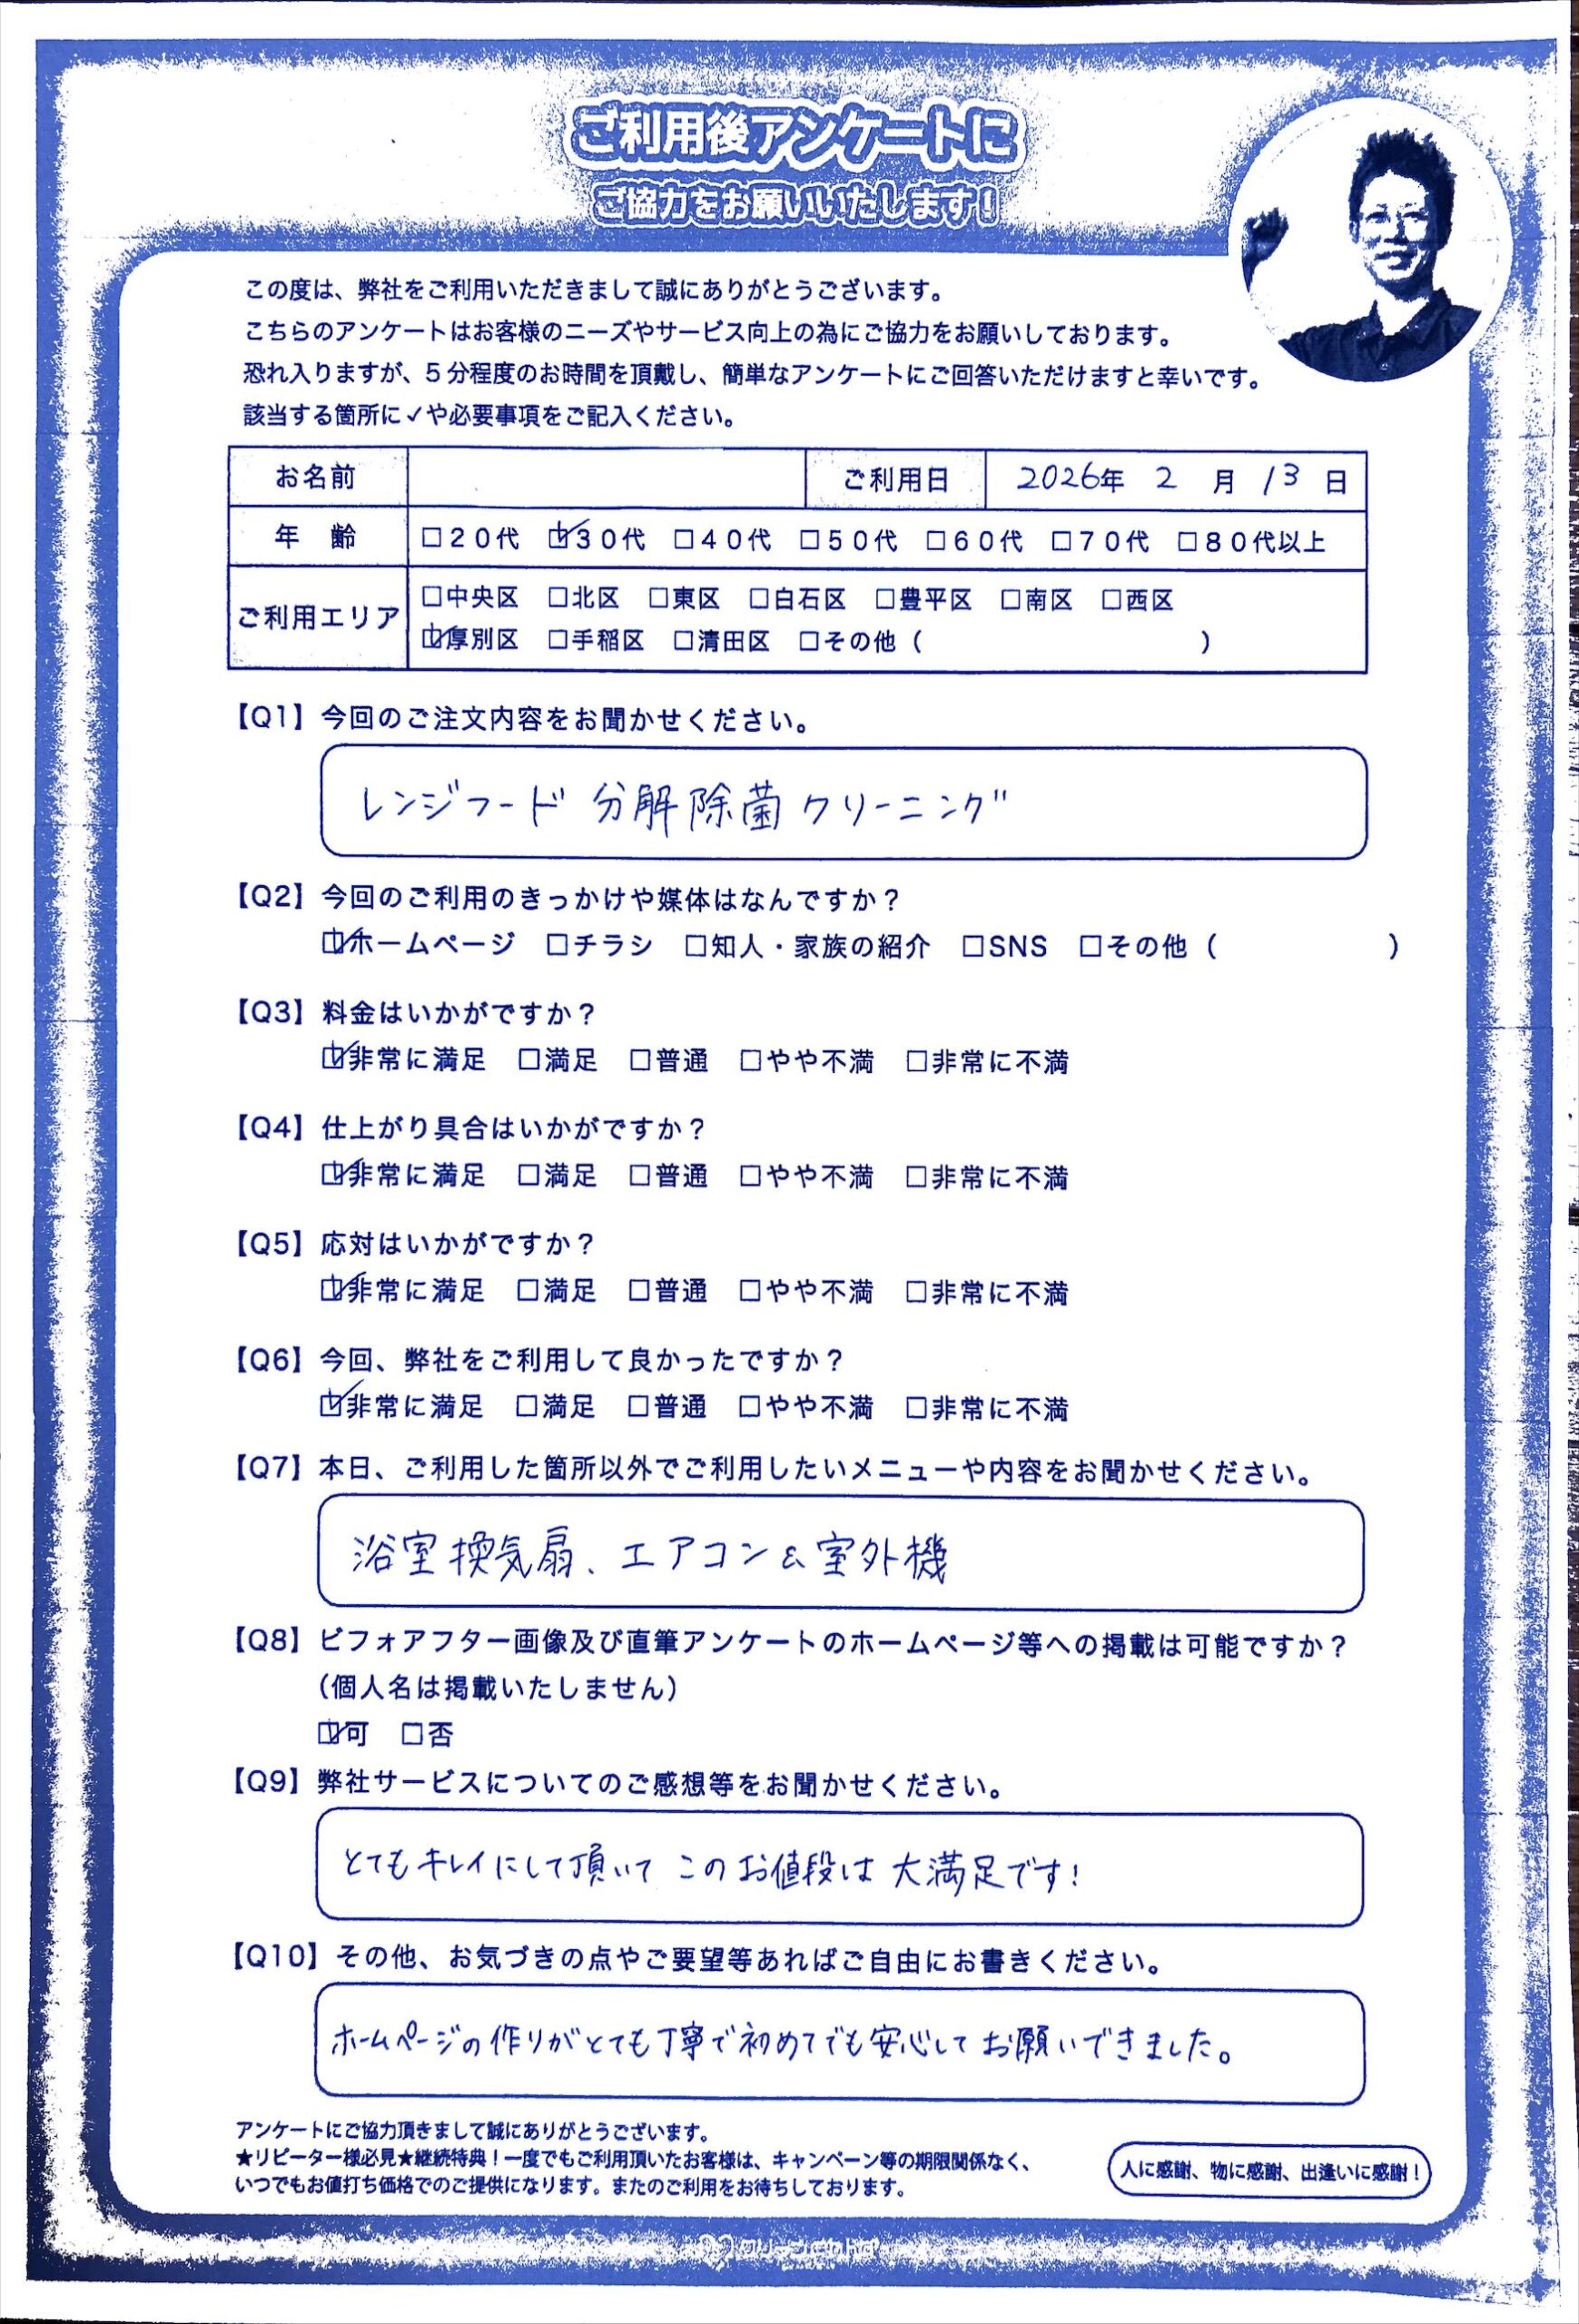 ご利用後アンケートに
ご協力をお願いいたします！
この度は、弊社をご利用いただきまして誠にありがとうございます。
こちらのアンケートはお客様のニーズやサービス向上の為にご協力をお願いしております。
恐れ入りますが、5分程度のお時間を頂戴し、簡単なアンケートにご回答いただけますと幸いです。
該当する箇所に✓や必要事項をご記入ください。
お名前 ご利用日 2026年 2 月 13 日
年 齢 □20代 ☑30代 □40代 □50代 □60代 □70代 □80代以上
ご利用エリア □中央区 □北区 □東区 □白石区 □豊平区 □南区 □西区
☑厚別区 □手稲区 □清田区 □その他（ ）
【Q1】今回のご注文内容をお聞かせください。
レンジフード 分解除菌クリーニング
【Q2】今回のご利用のきっかけや媒体はなんですか？
☑ホームページ □チラシ □知人・家族の紹介 □SNS □その他（ ）
【Q3】料金はいかがですか？
☑非常に満足 □満足 □普通 □やや不満 □非常に不満
【Q4】仕上がり具合はいかがですか？
☑非常に満足 □満足 □普通 □やや不満 □非常に不満
【Q5】応対はいかがですか？
☑非常に満足 □満足 □普通 □やや不満 □非常に不満
【Q6】今回、弊社をご利用して良かったですか？
☑非常に満足 □満足 □普通 □やや不満 □非常に不満
【Q7】本日、ご利用した箇所以外でご利用したいメニューや内容をお聞かせください。
浴室換気扇、エアコン&室外機
【Q8】ビフォアフター画像及び直筆アンケートのホームページ等への掲載は可能ですか？
（個人名は掲載いたしません）
☑可 □否
【Q9】弊社サービスについてのご感想等をお聞かせください。
とてもキレイにして頂いて このお値段は 大満足です！
【Q10】その他、お気づきの点やご要望等あればご自由にお書きください。
ホームページの作りがとても丁寧で初めてでも安心してお願いできました。
アンケートにご協力頂きまして誠にありがとうございます。
★リピーター様必見★継続特典！一度でもご利用頂いたお客様は、キャンペーン等の期限関係なく、
いつでもお値打ち価格でのご提供になります。またのご利用をお待ちしております。
人に感謝、物に感謝、出逢いに感謝！